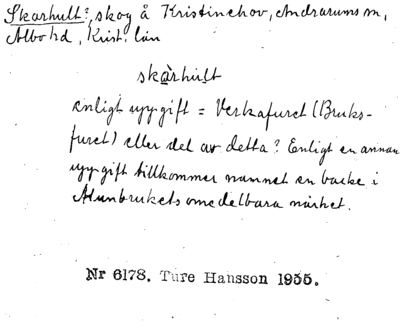 Skarhult?, skog å Kristinehov, Andrarums sn,
Albo hd, Krist. län
skàrhult
enligt uppgift = Verkafuret (Bruks-
furet) eller del av detta? Enligt en annan
uppgift tillkommer namnet en backe i
Alunbrukets omedelbara närhet.
Nr 6178. Ture Hansson 1955.